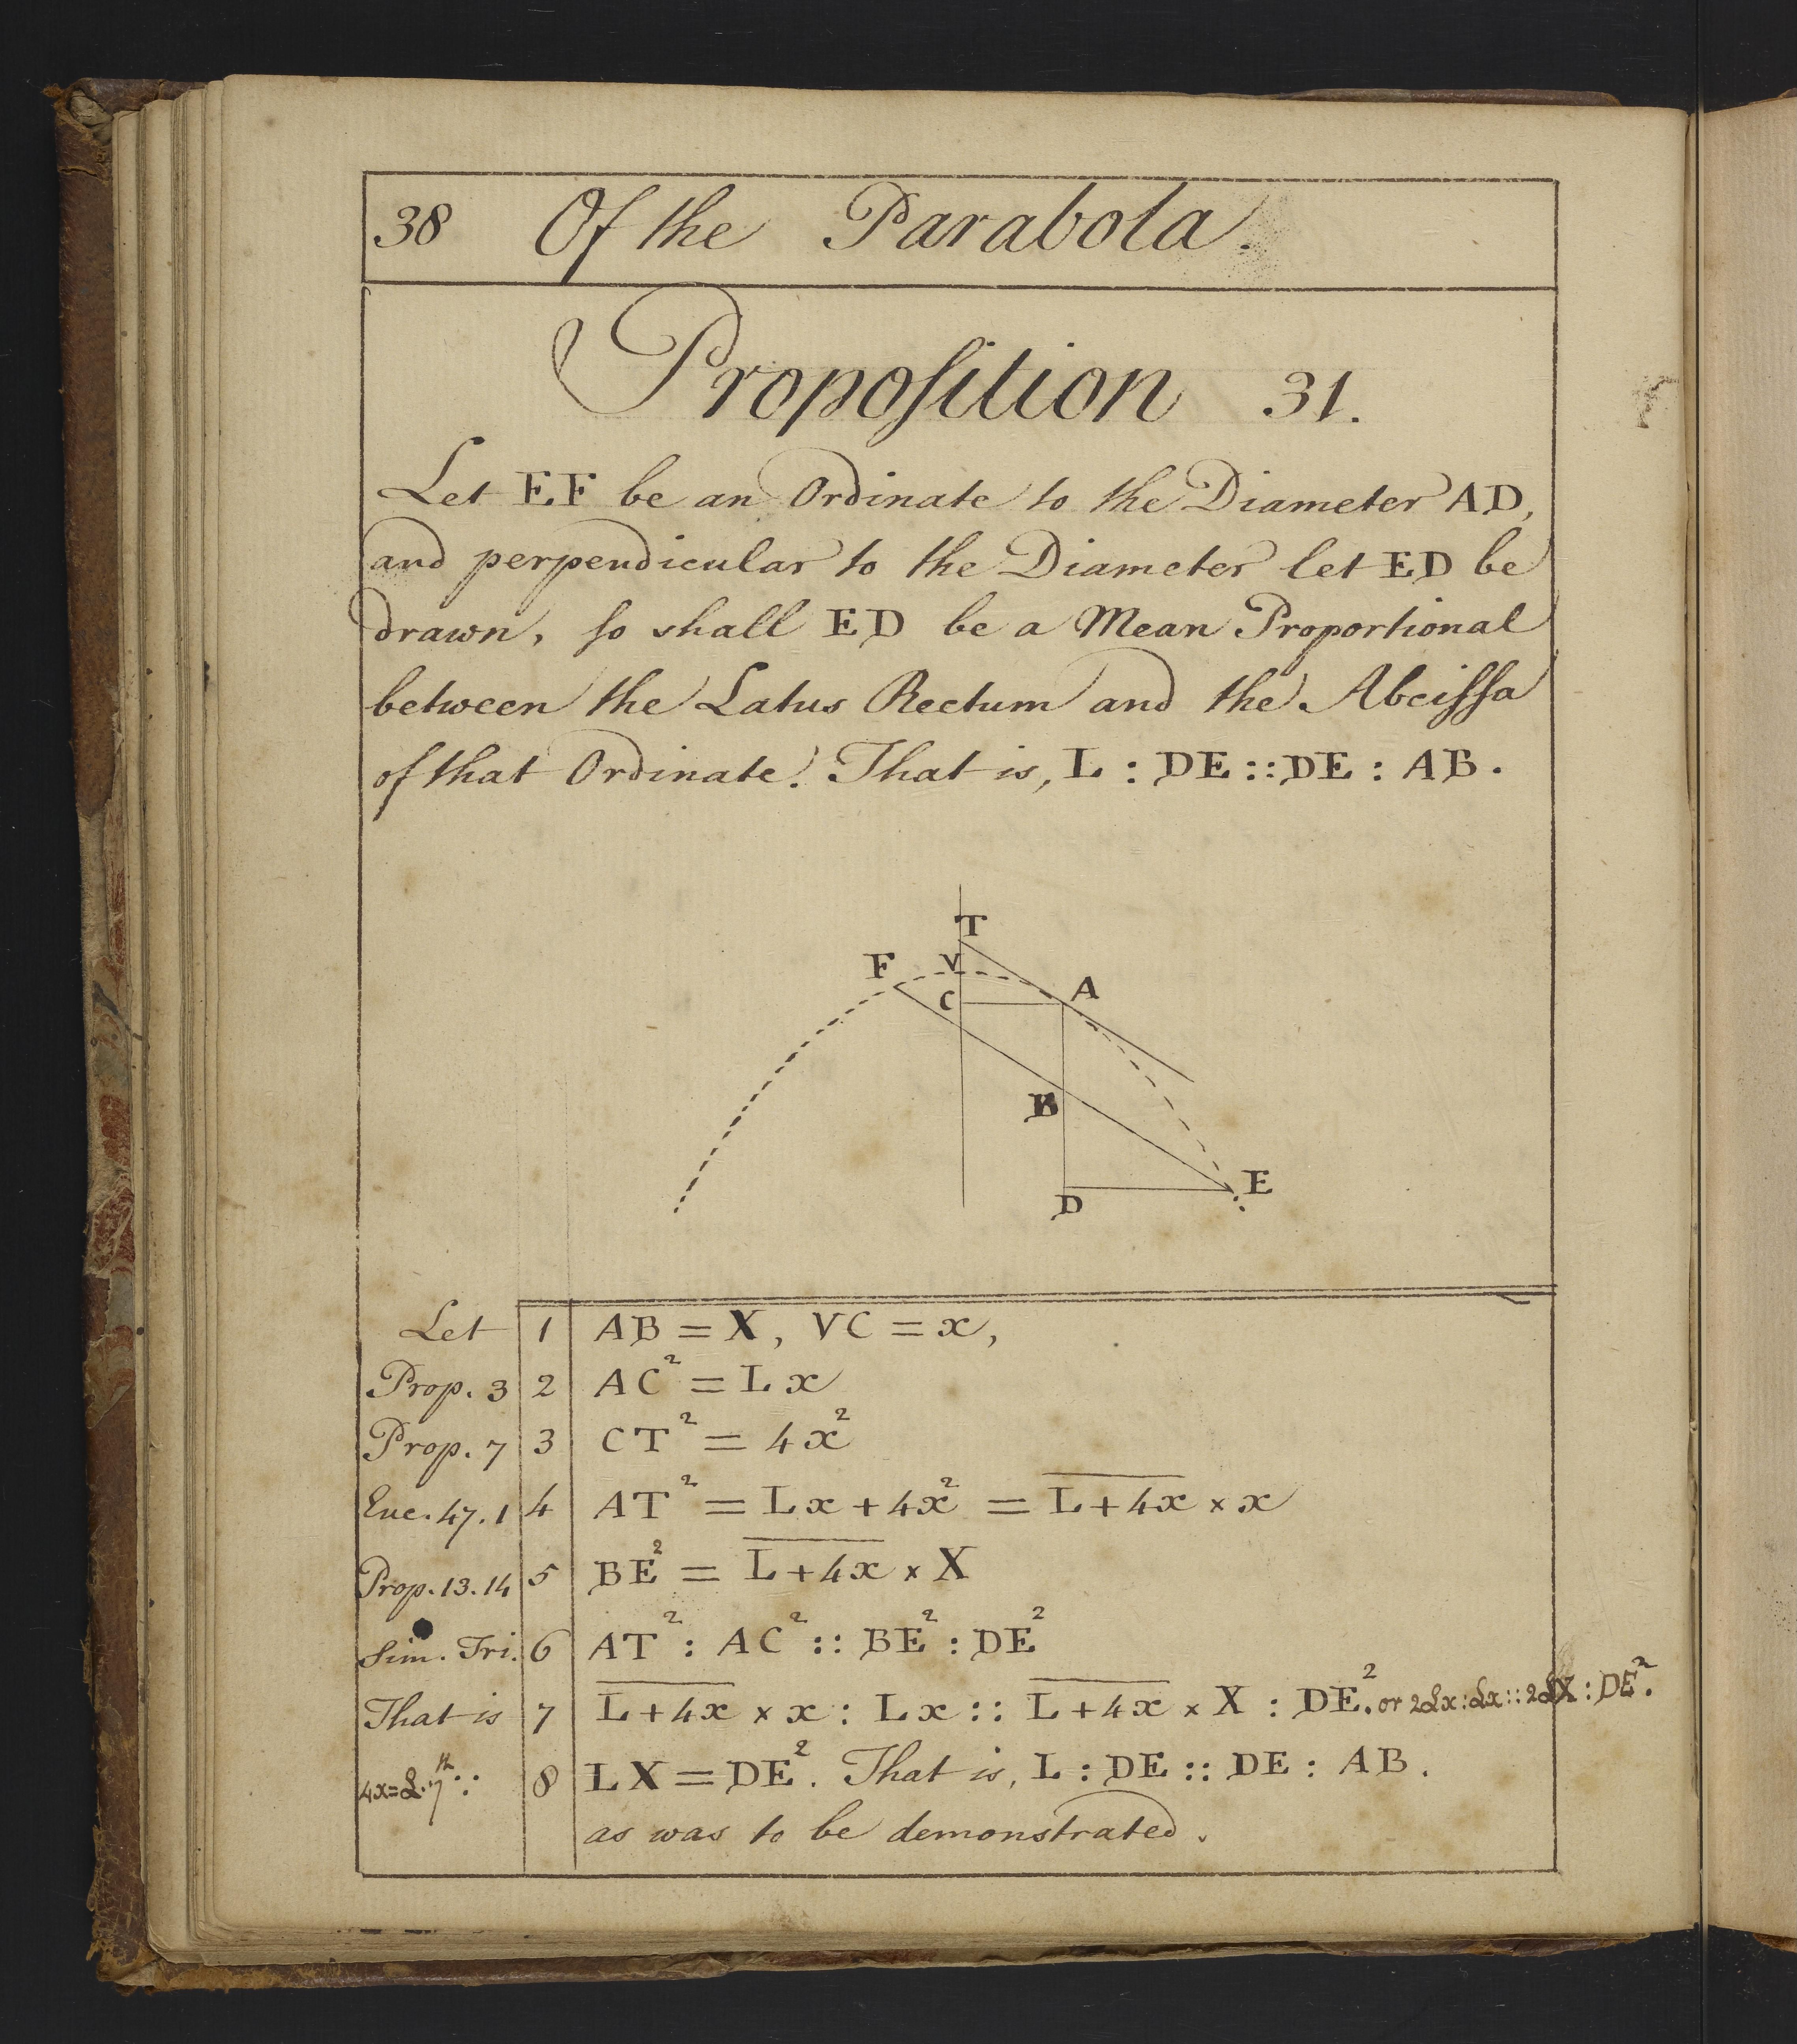 38 Of the Parabola.
Propoſition 31.
Let EF be an Ordinate to the Diameter AD,
and perpendicular to the Diameter let ED be
drawn, ſo shall ED be a Mean Proportional
between the Latus Rectum and the Abciſsa
of that Ordinate. That is, L : DE :: DE : AB.
T
F V
C A
B
D E
Let 1 AB = X, VC = x,
Prop. 3 2 AC² = Lx
Prop. 7 3 CT² = 4x²
Euc. 47. 1 4 AT² = Lx + 4x² = L̅+̅4̅x̅ × x
Prop. 13. 14 5 BE² = L̅+̅4̅x̅ × X
Sim. Tri. 6 AT² : AC² :: BE² : DE²
That is 7 L̅+̅4̅x̅ × x : Lx :: L̅+̅4̅x̅ × X : DE². or 2Lx : Lx :: 2LX : DE².
4x=L. 7th ∴ 8 LX = DE². That is, L : DE :: DE : AB.
as was to be demonstrated.